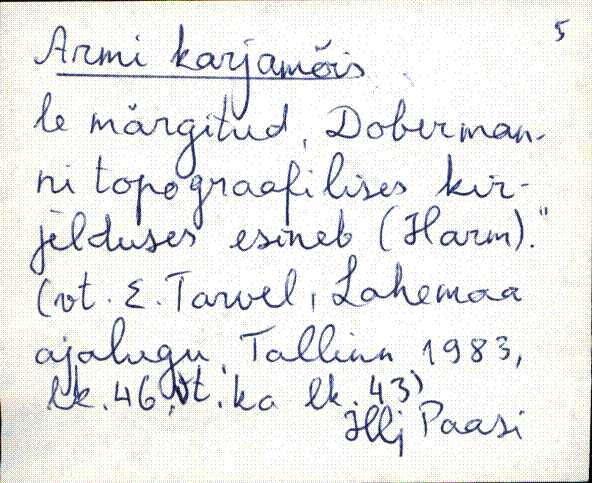 5
Armi karjamõis
le märgitud, Doberman-
ni topograafilises kir-
jelduses esineb (Harm)."
(vt. E. Tarvel, Lahemaa
ajalugu, Tallinn 1983,
lk. 46, vt. ka lk. 43)
Paasi